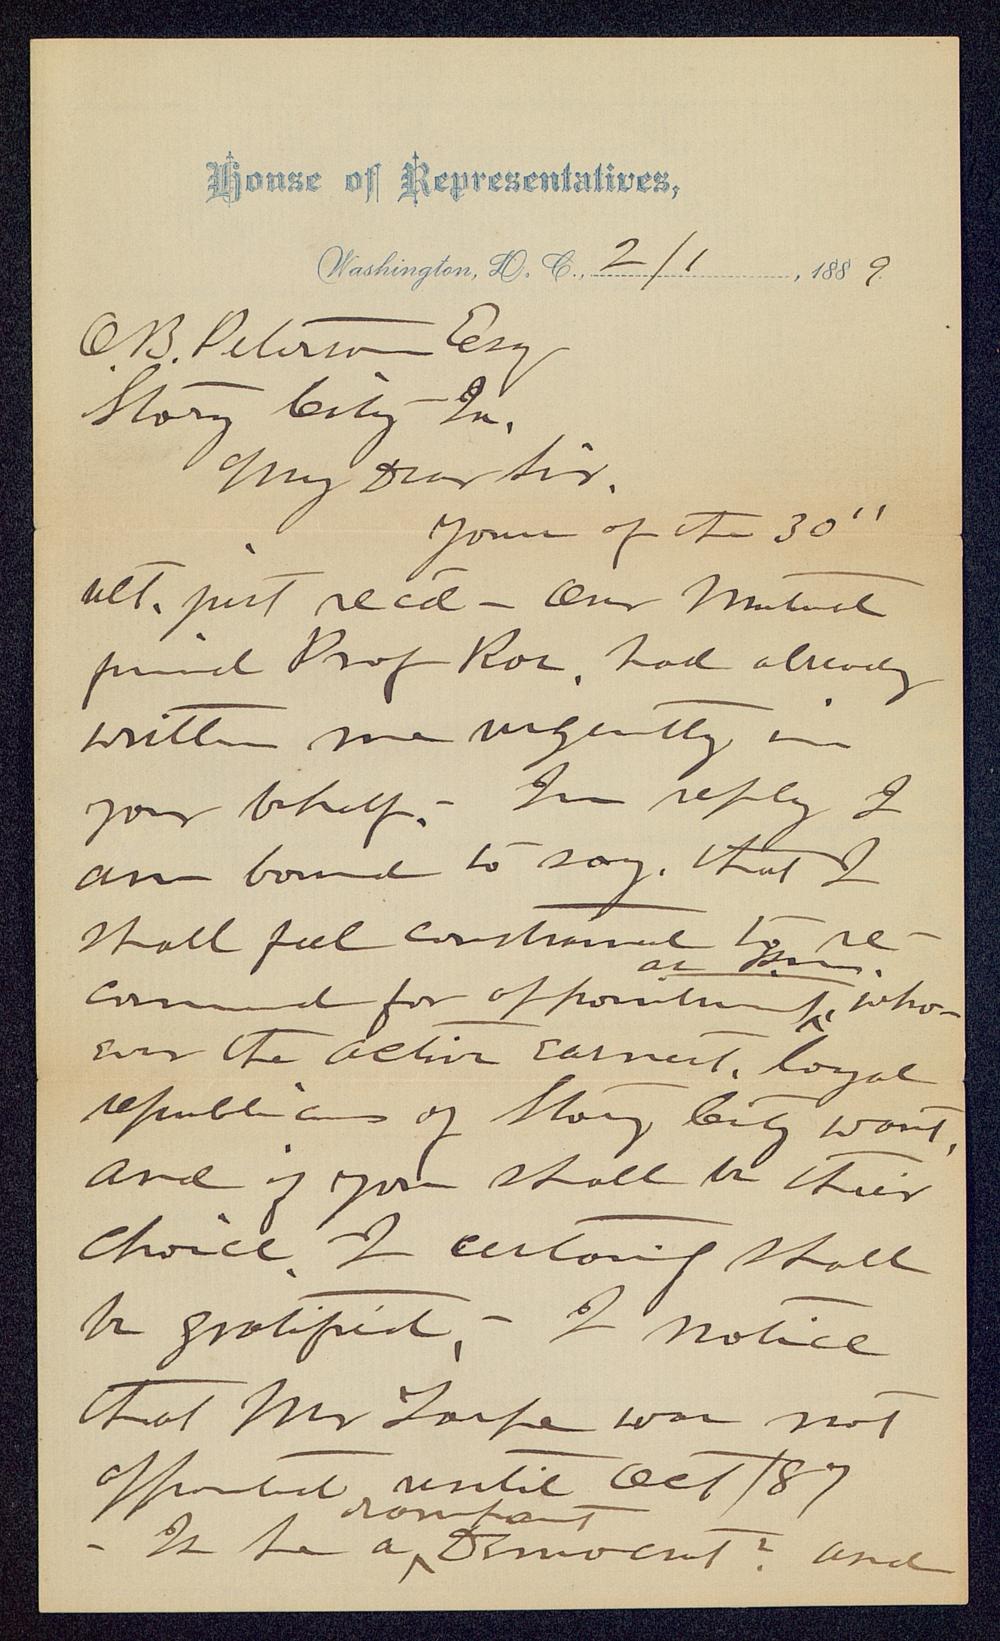 House of Representatives,
Washington, D. C., 2/1, 1889.
O.B. Peterson Esq
Story City Ia.
My Dear Sir.
Yours of the 30"
ult. just recd - Our Mutual
friend Prof Roe. had already
written me urgently in
your behalf. - In reply I
am bound to say, that I
shall feel constrained to re-
as P.M.
commend for appointment, who-
ever the active earnest, loyal
republicans of Story City want,
and if you shall be their
choice, I certainly shall
be gratified, - I notice
that Mr Tarpe was not
appointed until Oct /87
rampant
- Is he a Democrat? and